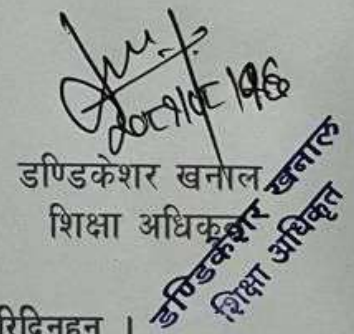 डण्डिकेशर खनाल
शिक्षा अधिकृत
डण्डिकेशर खनाल
शिक्षा अधिकृत